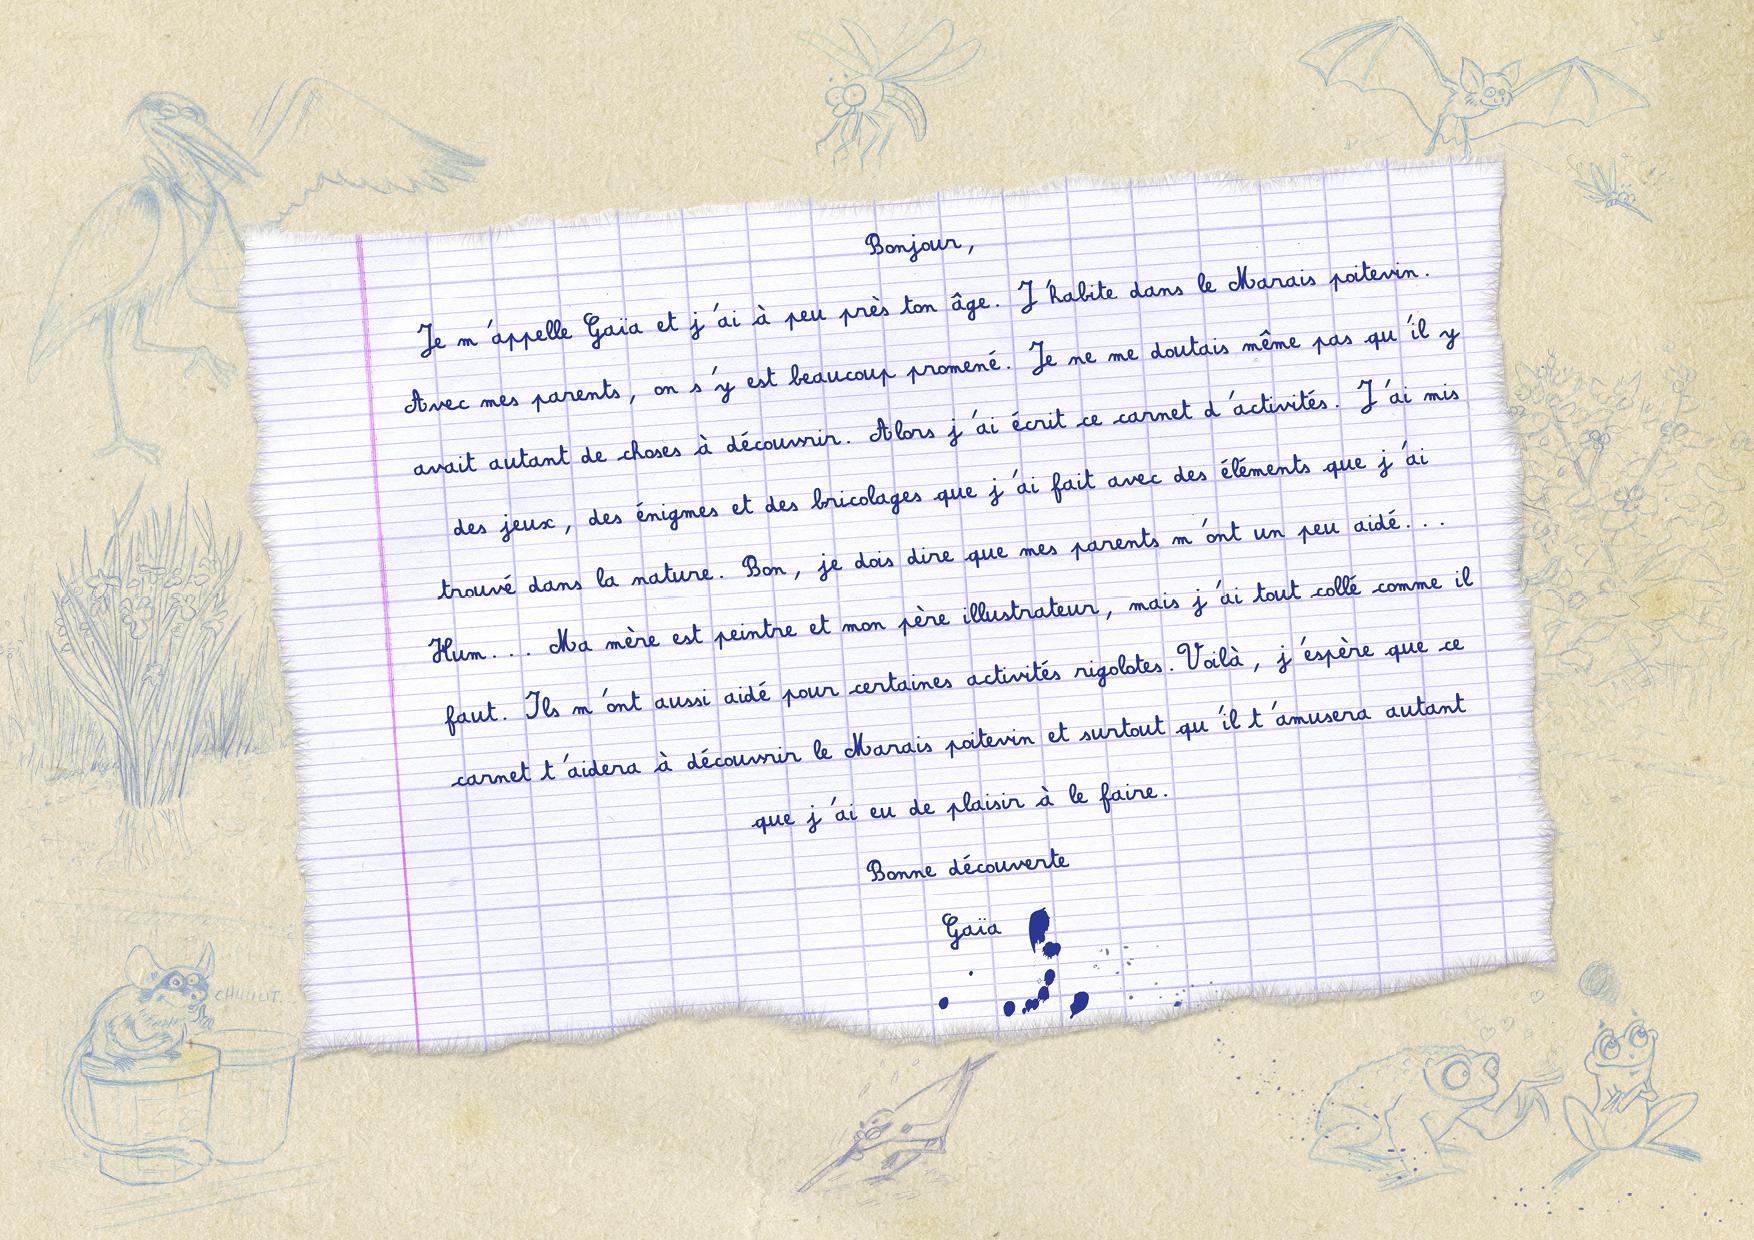 Bonjour,
Je m'appelle Gaïa et j'ai à peu près ton âge. J'habite dans le Marais poitevin.
Avec mes parents, on s'y est beaucoup promené. Je ne me doutais même pas qu'il y
avait autant de choses à découvrir. Alors j'ai écrit ce carnet d'activités. J'ai mis
des jeux, des énigmes et des bricolages que j'ai fait avec des éléments que j'ai
trouvé dans la nature. Bon, je dois dire que mes parents m'ont un peu aidé...
Hum... Ma mère est peintre et mon père illustrateur, mais j'ai tout collé comme il
faut. Ils m'ont aussi aidé pour certaines activités rigolotes. Voilà, j'espère que ce
carnet t'aidera à découvrir le Marais poitevin et surtout qu'il t'amusera autant
que j'ai eu de plaisir à le faire.
Bonne découverte
Gaïa
CHUUUT.